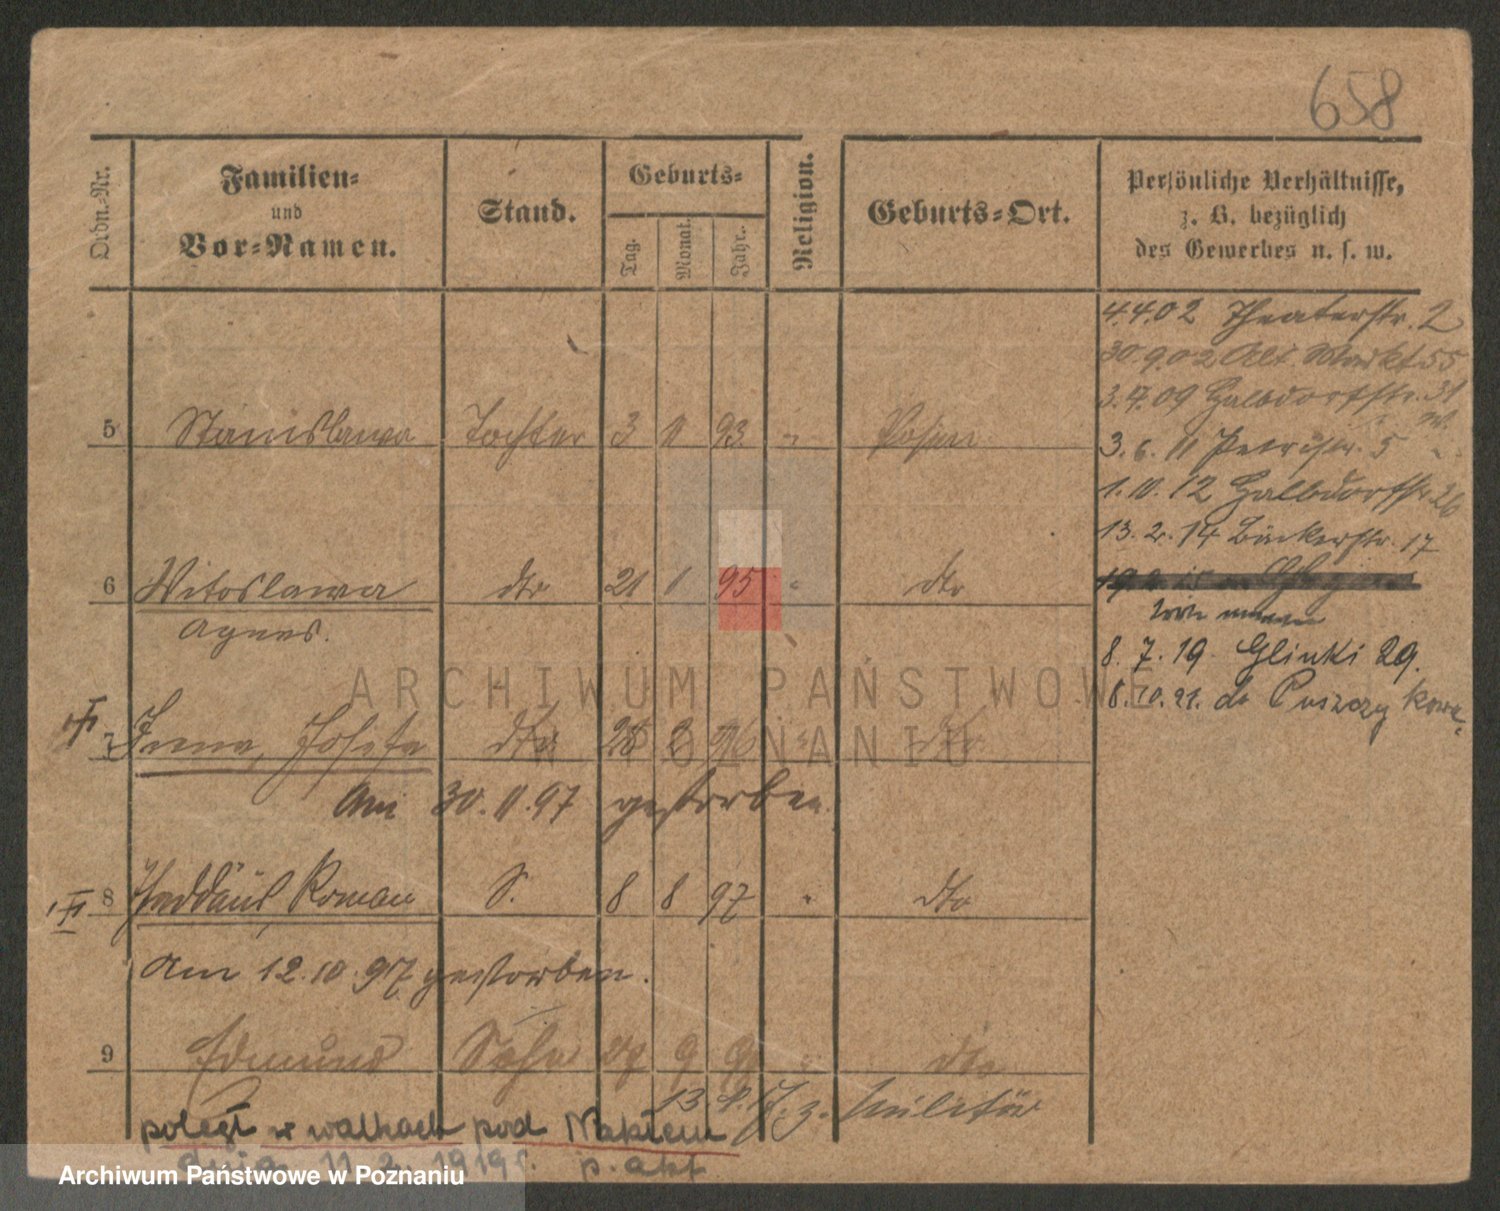 658
Ordn.-Nr.
Familien-
und
Vor-Namen.
Stand.
Geburts-
Tag.
Monat.
Jahr.
Religion.
Geburts-Ort.
Persönliche Verhältnisse,
z. B. bezüglich
des Gewerbes u. s. w.
4.4.02 Theaterstr. 2
30.9.02 Alt. Markt 55
3.4.09 Halbdorfstr. 31
5 Stanislawa Tochter 3 11 93 " Posen
3.6.11 Petristr. 5
1.10.12 Halbdorfstr. 26
13.2.14 Bäckerstr. 17
6 Witoslawa dto 21 1 95 " dto
Agnes.
8.7.19 Glinki 29.
8.10.21. do Puszczykowa
7 Irena, Josefa dto 28 2 96 " dto
Am 30.11.97 gestorben.
8 Thaddäus, Roman S. 8 8 97 " dto
Am 12.10.97 gestorben.
9 Edmund Sohn 27 9 " dto
13. 4. 17. z. Militär
poległ w walkach pod Nakłem
dnia 11.2.1919 r. p. akt
ARCHIWUM PAŃSTWOWE
W POZNANIU
Archiwum Państwowe w Poznaniu